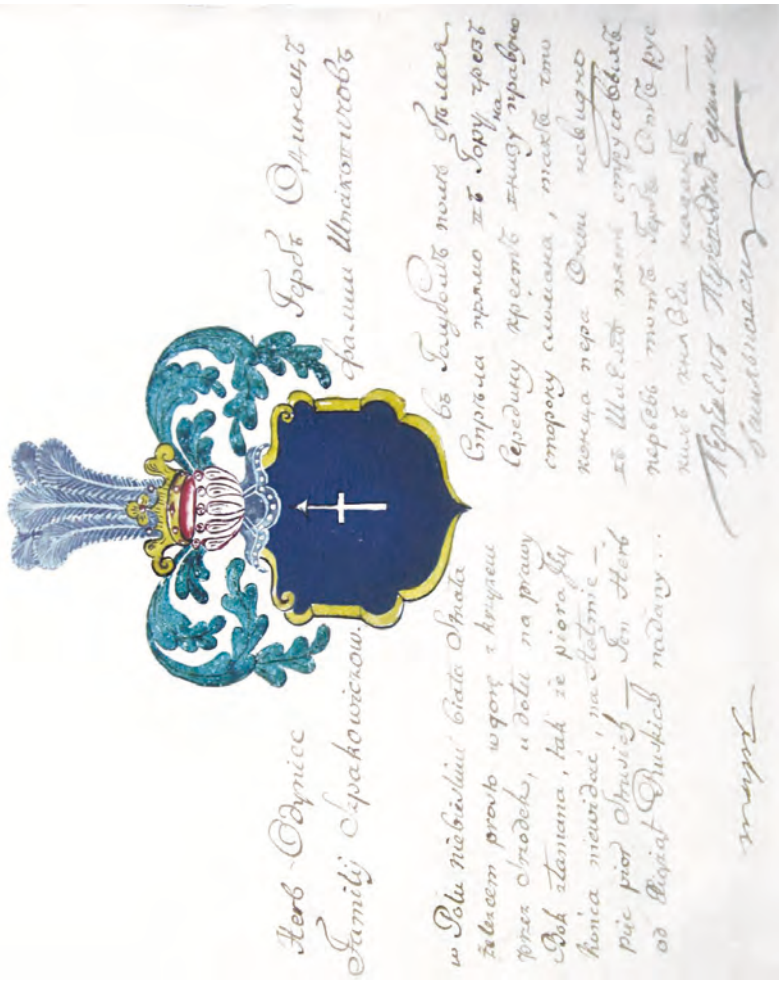 Herb Odyniec
Familij Szpakowiczow.
w Polu Niebieskim biała Strzała
żelezcem prosto w gorę z krzyżem
przez Srzodek, u dołu na prawy
Bok złamana, tak że piora Jey
końca niewidać, na Hełmie –
pięc pior Strusich – Ten Herb
od Xiąząt Ruskich nadany...
Гербъ Одинецъ
фамилии Шпаковичовъ
въ Голубомъ поле белая
Стрела прямо въ Гору, чрезъ
Середину крестъ внизу на правую
сторону сломана, такъ что
конца пера Оной невидно
въ Шлеме пять струсовыхъ
перьевъ тотъ Гербъ Отъ рус
кихъ князей
Переводилъ